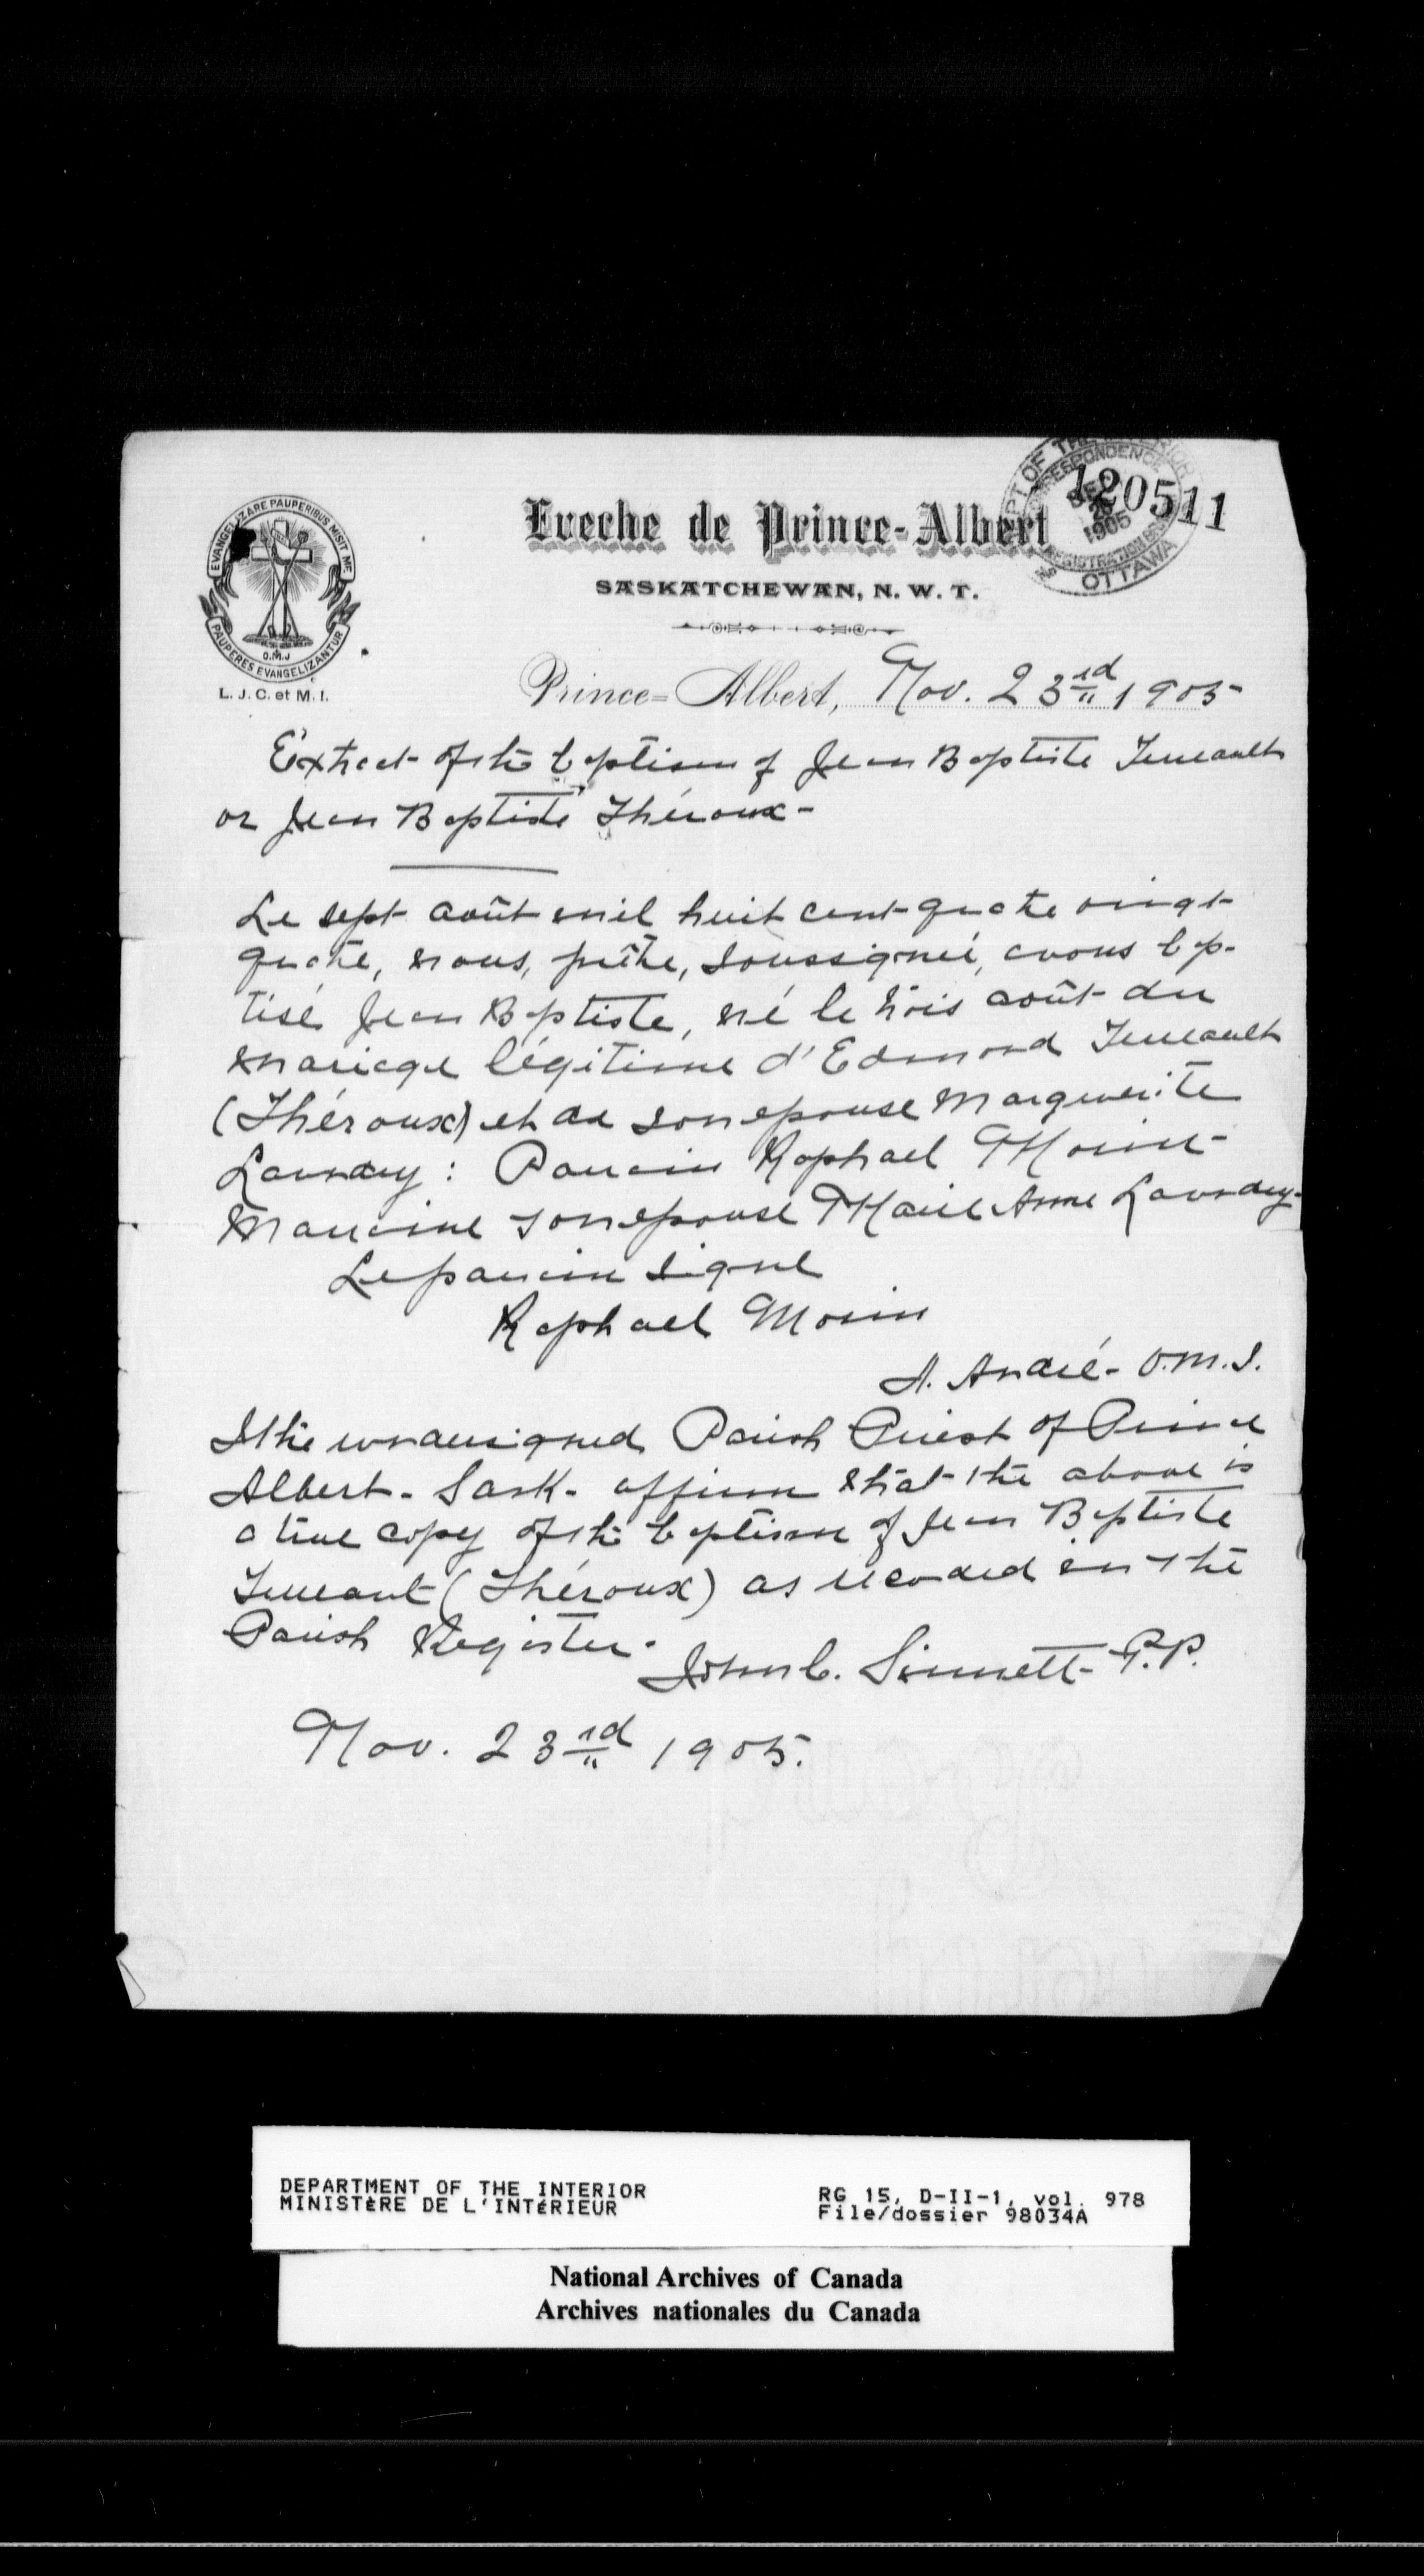 EVANGELIZARE PAUPERIBUS MISIT ME
O.M.J
PAUPERES EVANGELIZANTUR
L. J. C. et M. I.
Eveche de Prince-Albert
SASKATCHEWAN, N. W. T.
DEPT OF THE INTERIOR
CORRESPONDENCE
DEC 26 1905
REGISTRATION
OTTAWA
120511
Prince-Albert, Nov. 23rd 1905
Extract of the baptism of Jean Baptiste Terreault
or Jean Baptiste Théroux -
Le sept août mil huit cent quatre vingt
quatre, nous, prêtre, soussigné, avons bap-
tisé Jean Baptiste, né le trois août du
mariage légitime d'Edmond Terreault
(Théroux) et de son epouse Marguerite
Laundry: Parrain Raphael Morin -
Marraine son epouse Marie Anne Laundry-
Le parrain signe
Raphael Morin
A. André - O.M.I.
I the undersigned Parish Priest of Prince
Albert - Sask - affirm that the above is
a true copy of the baptism of Jean Baptiste
Terreault (Théroux) as recorded in the
Parish Register.
John C. Sinnett - P.P.
Nov. 23rd 1905.
DEPARTMENT OF THE INTERIOR
MINISTÈRE DE L'INTÉRIEUR
RG 15, D-II-1, vol. 978
File/dossier 98034A
National Archives of Canada
Archives nationales du Canada